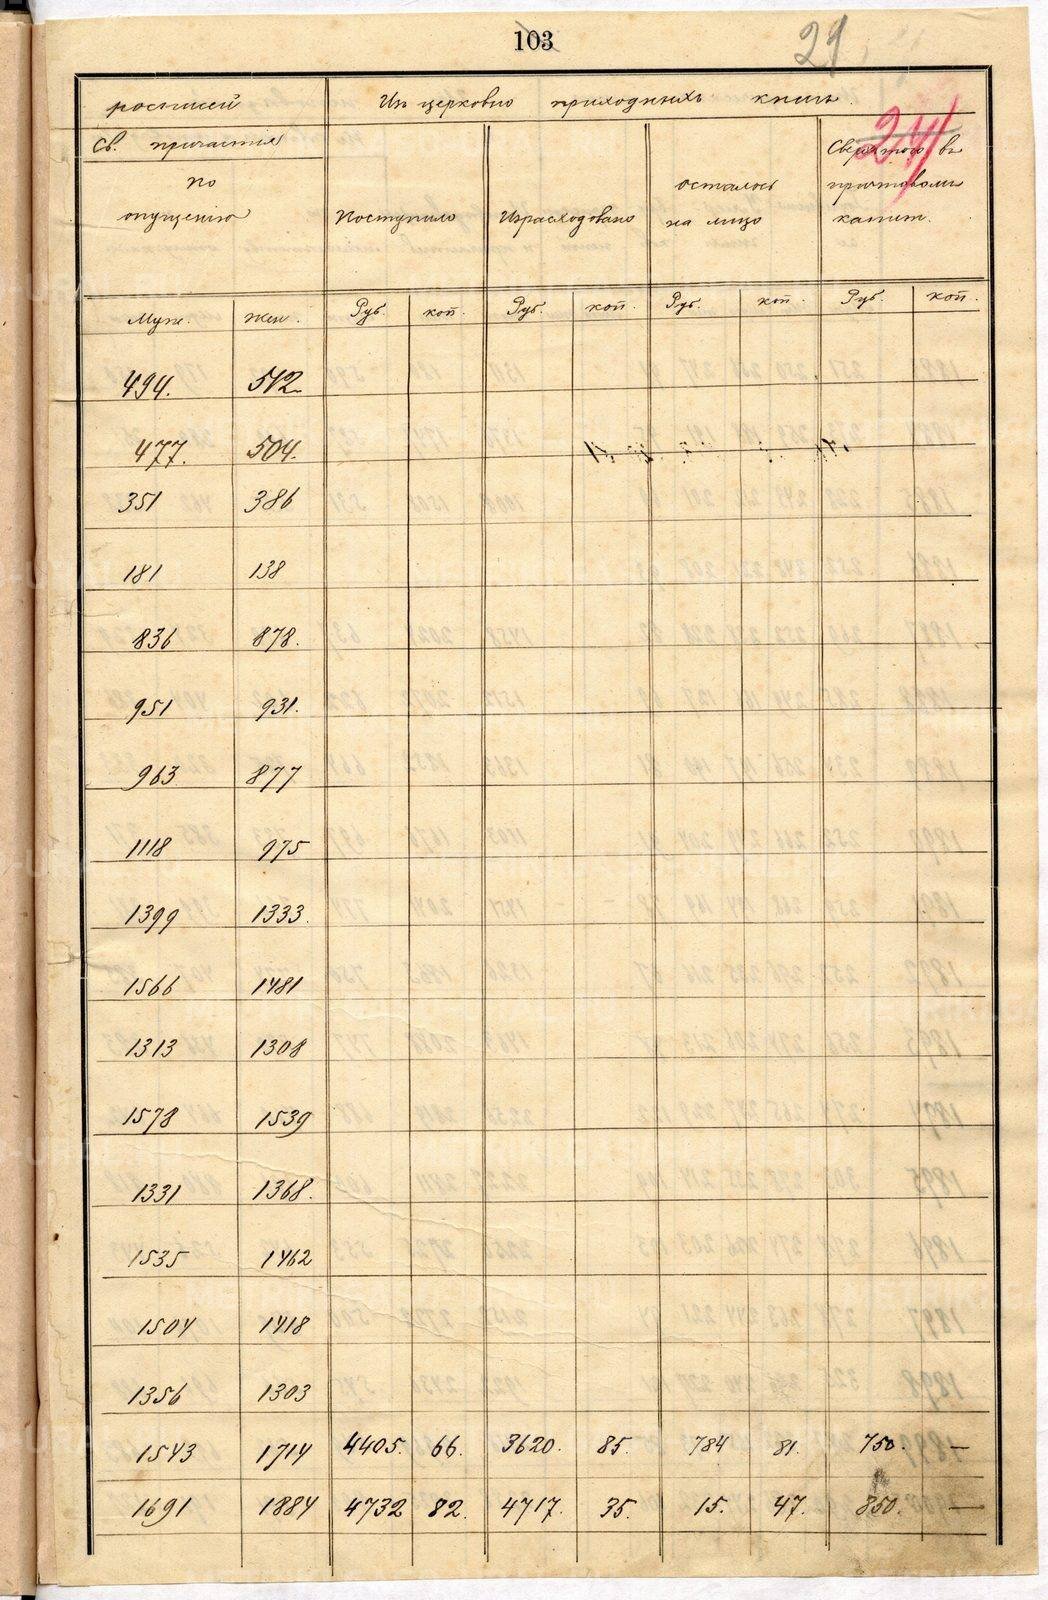 103
29
росписей Изъ церковно приходныхъ книгъ.
Св. причастия
по
опущению
Поступило Израсходовано
осталось
на лицо
Сверх того въ
капит.
Муж. жен. Руб. коп. Руб. коп. Руб. коп. Руб. коп.
494. 512
477. 504.
351 386
181 138
836 878.
951 931.
963 877
1118 975
1399 1333.
1566 1481
1313 1308
1578 1539
1331 1368.
1535 1462
1504 1418
1356 1303
1543 1714 4405. 66. 3620. 85. 784 81. 750. —
1691 1884 4732 82. 4717. 35. 15. 47. 850. —